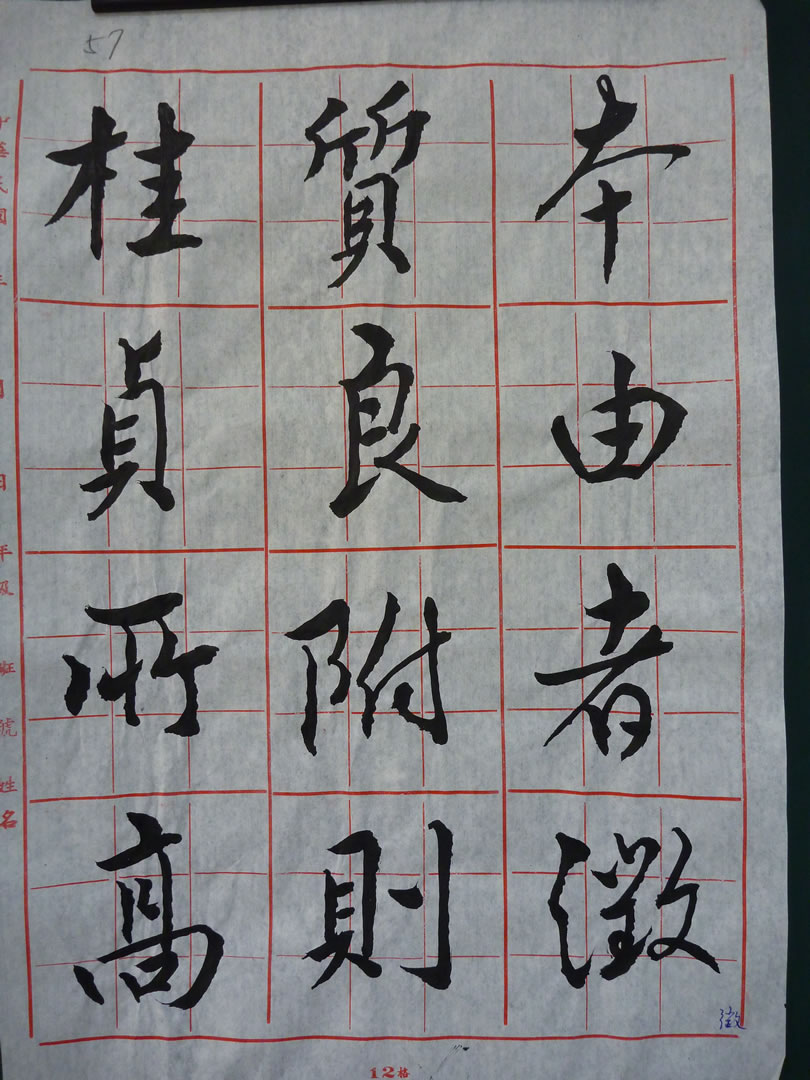 57
桂質本
貞良由
所附者
高則微
微
中華民國 年 月 日 年級 班 號 姓名
12格